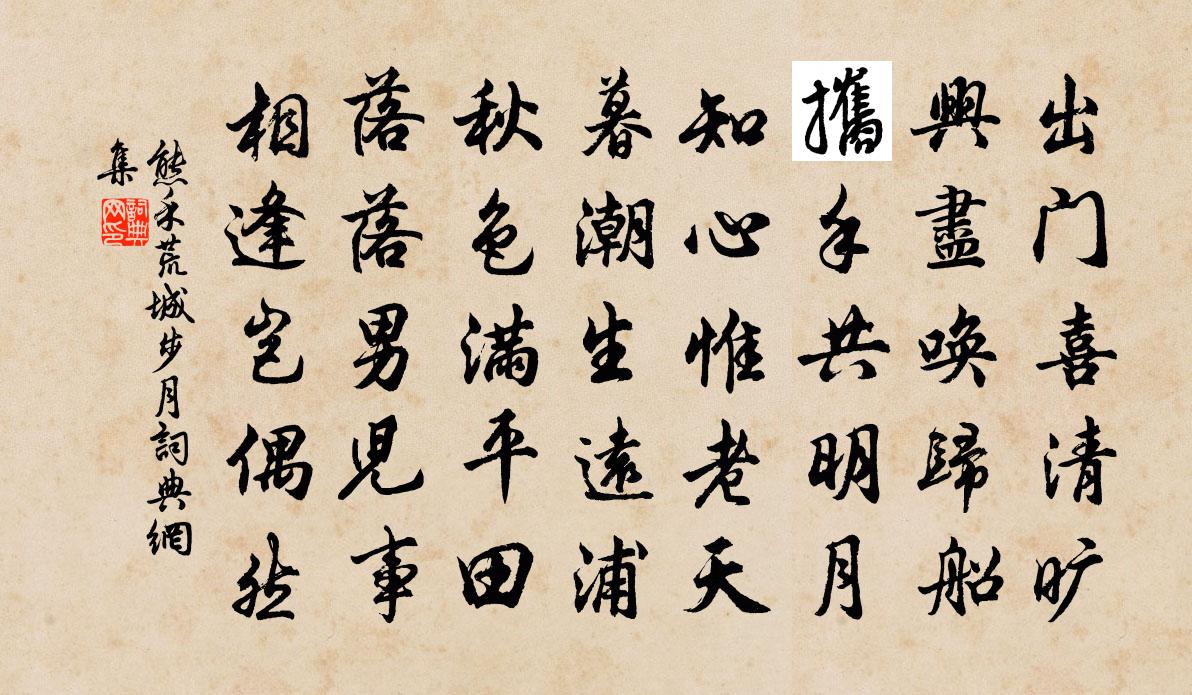 出门喜清旷
興盡唤歸船
攜手共明月
知心惟老天
暮潮生遠浦
秋色满平田
落落男児事
相逢岂偶然
熊禾荒城步月詞典網
集
詞典網印